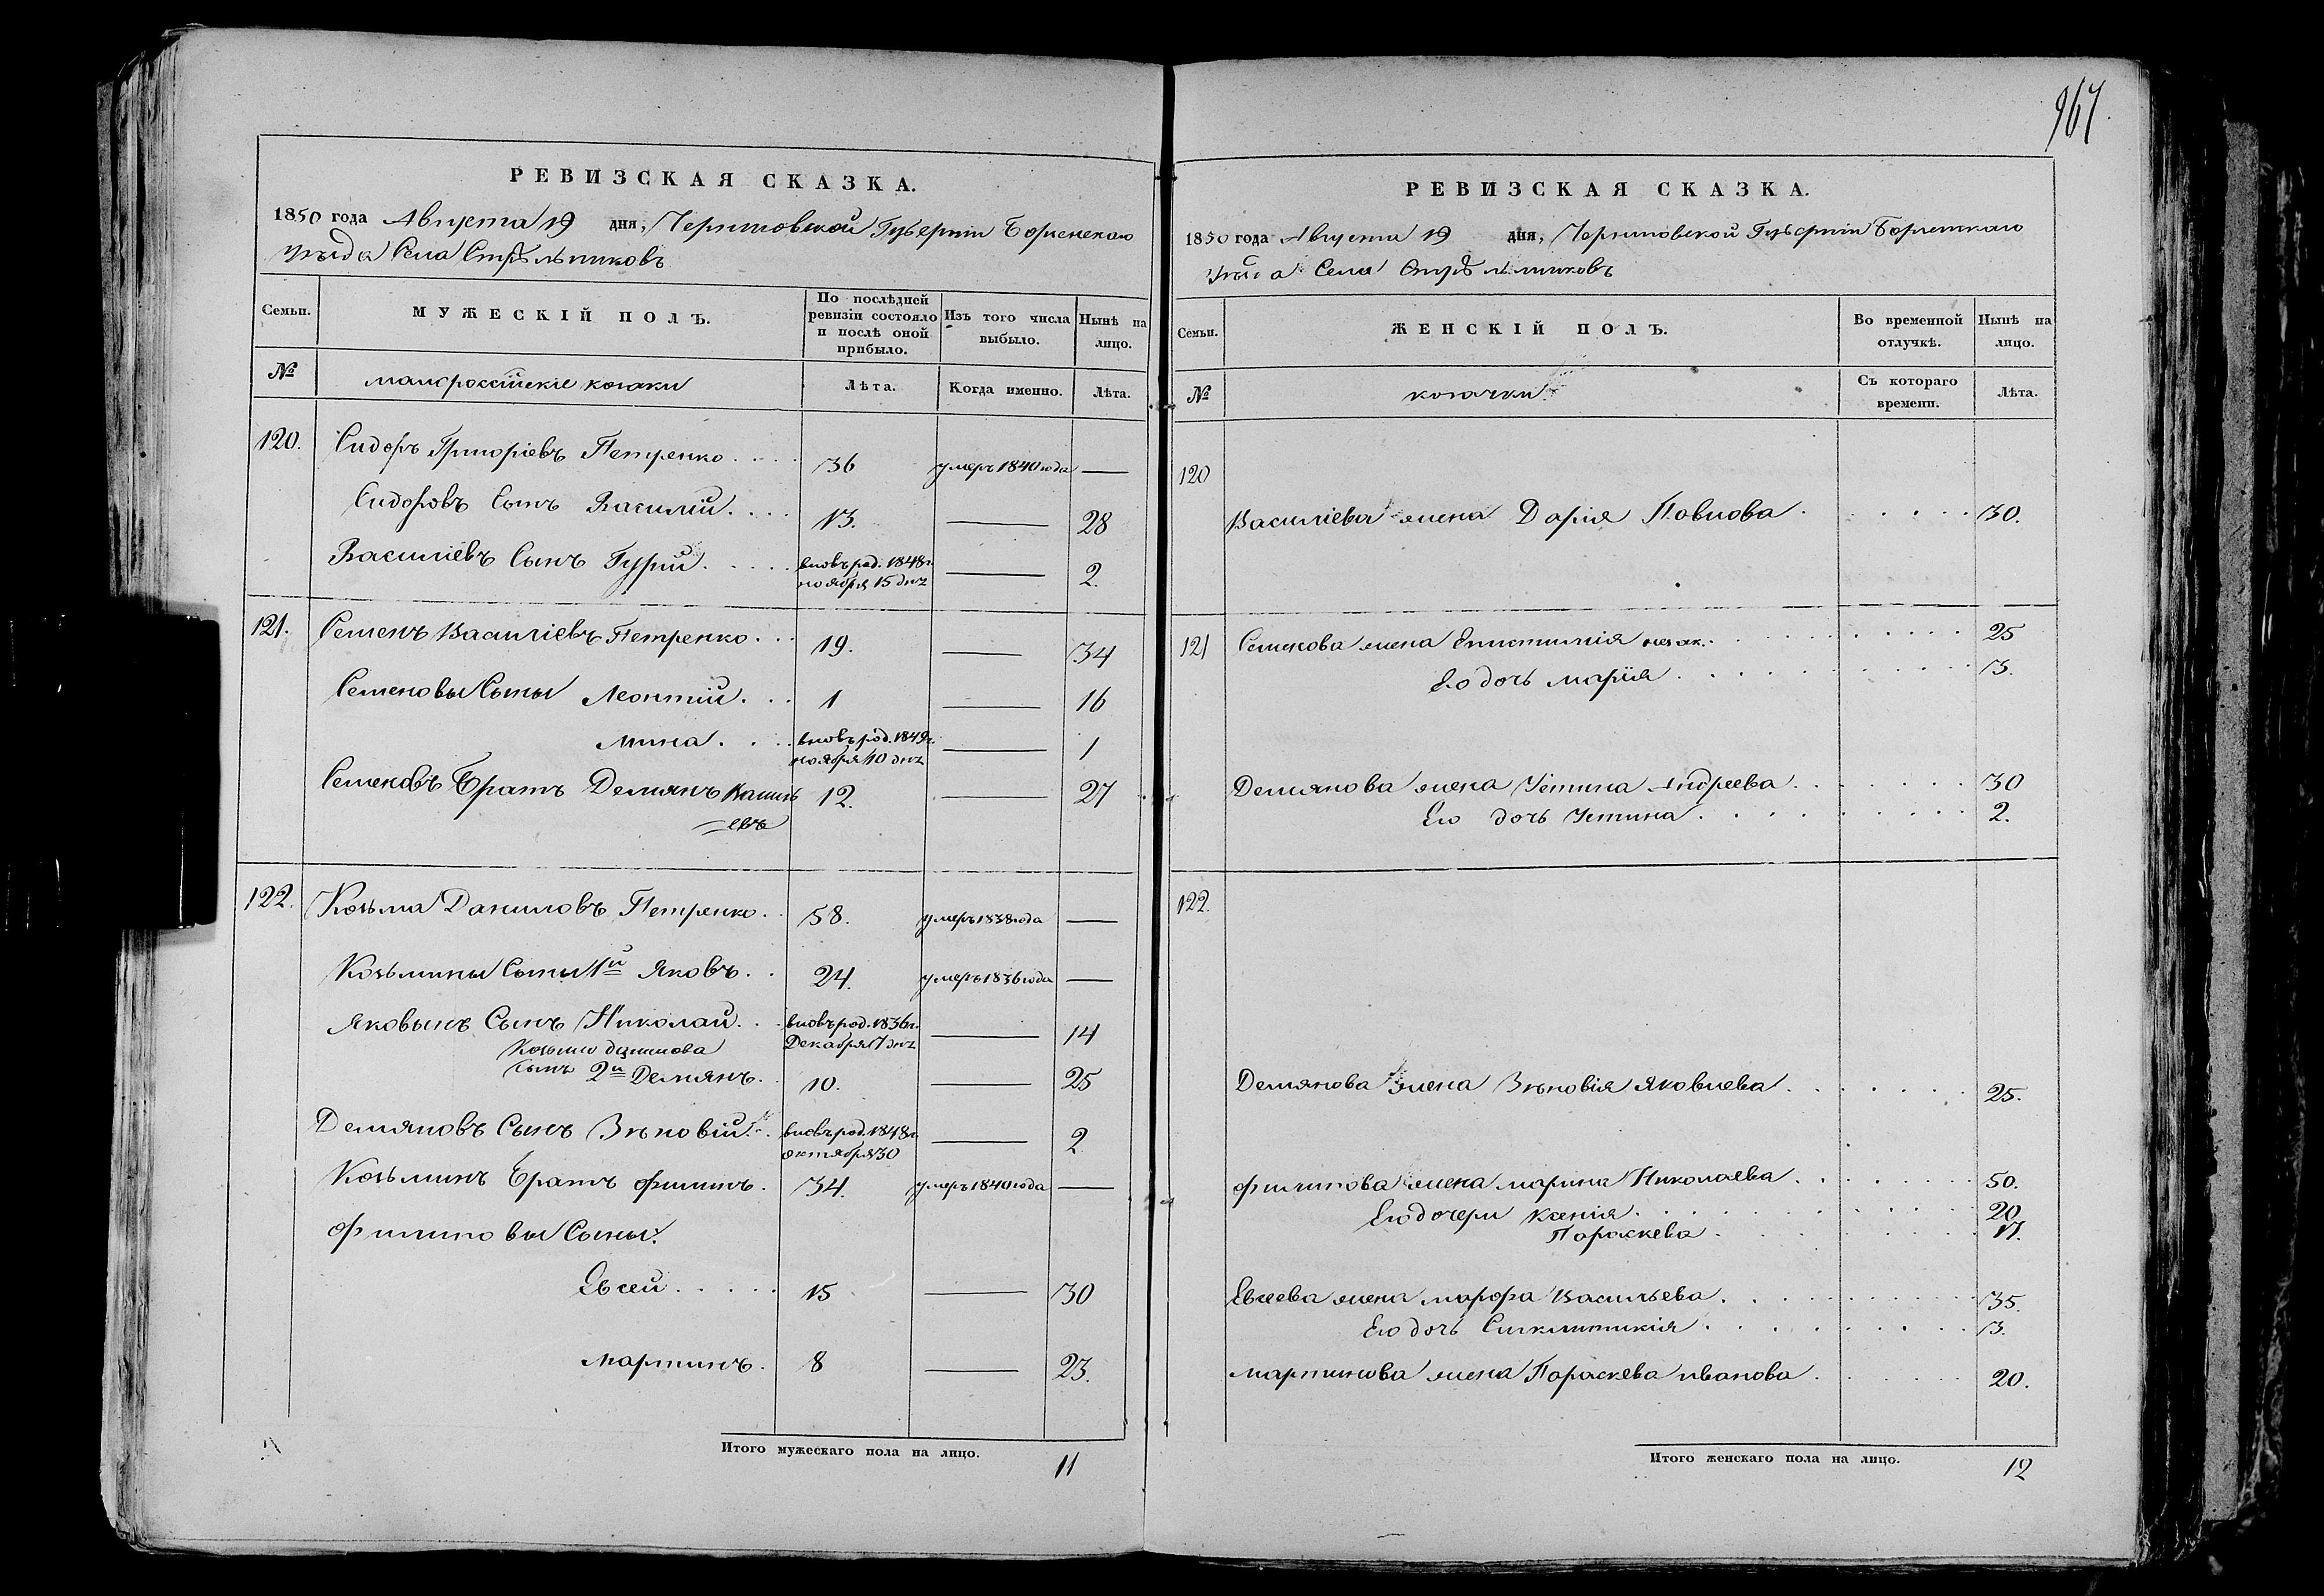 967.
РЕВИЗСКАЯ СКАЗКА.
1850 года Августа 19 дня, Черниговской Губерніи Борзенскаго
уѣзда Села Стрѣльниковъ
Семьи. МУЖЕСКІЙ ПОЛЪ. По послѣдней ревизіи состояло и послѣ оной прибыло. Изъ того числа выбыло. Нынѣ на лицо.
№ малороссійскіе козаки Лѣта. Когда именно. Лѣта.
120. Сидоръ Григоріевъ Петренко. 36 умеръ 1840 года —
Сидоровъ Сынъ Василій. 13. — 28
Василіевъ Сынъ Гурій. вновь род. 1848 г. ноября 15 дня — 2.
121. Семенъ Василіевъ Петренко. 19. — 34
Семеновы Сыны Леонтій. 1 — 16
Мина. вновь род. 1849 г. ноября 10 дня — 1
Семеновъ Братъ Демянъ Васильевъ 12. — 27
122. Козьма Даниловъ Петренко. 58. умеръ 1838 года —
Козьмины Сыны 1й Яковъ. 24. умеръ 1836 года —
Яковынъ Сынъ Николай. вновь род. 1836 г. Декабря 17 дня — 14
Козьмы Данилова
Сынъ 2й Демянъ. 10. — 25
Демяновъ Сынъ Зѣновій. вновь род. 1848 г. октября 30 — 2
Козьминъ Братъ Филипъ. 34. умеръ 1840 года —
Филиповы Сыны:
Евсей. 15 — 30
Мартинъ. 8 — 23.
Итого мужескаго пола на лицо. 11
РЕВИЗСКАЯ СКАЗКА.
1850 года Августа 19 дня, Черниговской Губерніи Борзенскаго
уѣзда Села Стрѣльниковъ
Семьи. ЖЕНСКІЙ ПОЛЪ. Во временной отлучкѣ. Нынѣ на лицо.
№ козачки. Съ котораго времени. Лѣта.
120
Василіева жена Дарія Павлова. 30.
121 Семенова жена Епистимія 25
Его дочь Марія. 3.
Демянова жена Устина Андреева. 30
Его дочь Устина. 2.
122.
Демянова жена Зѣновія Яковлева. 25.
Филипова жена Марина Николаева. 50.
Его дочери Ксенія. 20
Параскева. 17.
Евсеева жена Марфа Васильева. 35.
Его дочь Синклитикія. 3.
Мартинова жена Параскева Иванова. 20.
Итого женскаго пола на лицо. 12